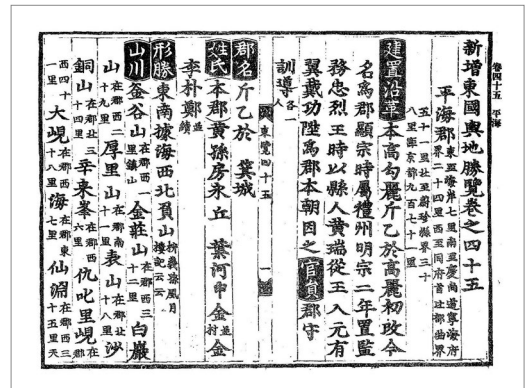 卷四十五 平海
新增東國輿地勝覽卷之四十五
平海郡 東至海岸七里南至慶尙道寧海府界二十四里西至同府首比部曲界
五十一里北至蔚珍縣界三十八里距京都九百七十一里
建置沿革 本高勾麗斤乙於高麗初改今
名爲郡顯宗時屬禮州明宗二年置監
務忠烈王時以縣人黃瑞從王入元有
翼戴功陞爲郡本朝因之 官員 郡守
訓導各一人
東覽四十五 一
郡名 斤乙於 箕城
姓氏 本郡黃孫房永丘 葉河申金並村金
李朴鄭並續
形勝 東南據海西北負山柳義孫風月樓記云云
山川 釜谷山在郡西一里鎭山 金莊山在郡西三十二里 白巖
山在郡西二十九里 厚里山在郡南十一里 表山在郡北十八里 沙
銅山在郡北三十四里 幸來峯在郡西六里 仇叱里峴在郡
西四十一里 大峴在郡西十八里 海在郡東七里 仙淵在郡西三十五里天